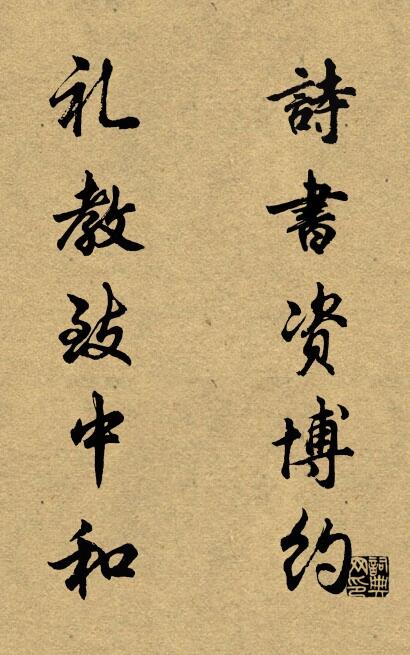 詩書資博約
礼教致中和
詞典网印